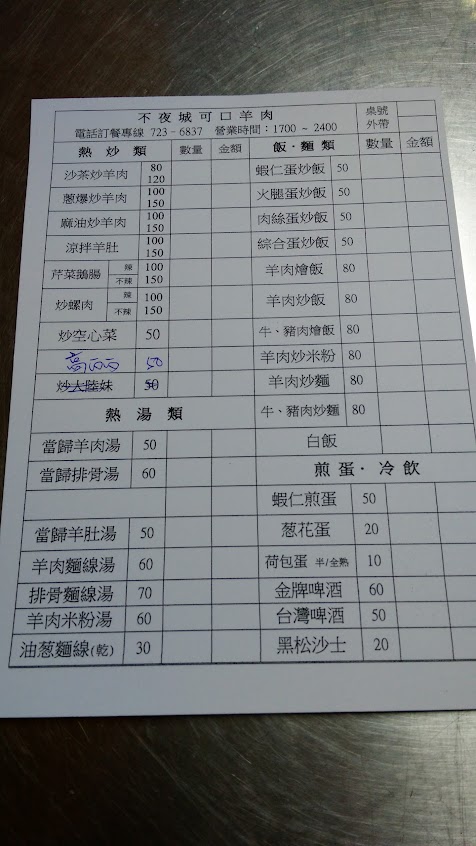 不夜城可口羊肉
電話訂餐專線 723-6837 營業時間：1700 ~ 2400
桌號
外帶
熱炒類 數量 金額
沙茶炒羊肉 80 120
蔥爆炒羊肉 100 150
麻油炒羊肉 100 150
涼拌羊肚 100 150
芹菜鵝腸 辣 不辣 100 150
炒螺肉 辣 不辣 100 150
炒空心菜 50
高丽菜 50
炒大陸妹 50
熱湯類
當歸羊肉湯 50
當歸排骨湯 60
當歸羊肚湯 50
羊肉麵線湯 60
排骨麵線湯 70
羊肉米粉湯 60
油葱麵線(乾) 30
飯·麵類 數量 金額
蝦仁蛋炒飯 50
火腿蛋炒飯 50
肉絲蛋炒飯 50
綜合蛋炒飯 50
羊肉燴飯 80
羊肉炒飯 80
牛、豬肉燴飯 80
羊肉炒米粉 80
羊肉炒麵 80
牛、豬肉炒麵 80
白飯
煎蛋·冷飲
蝦仁煎蛋 50
葱花蛋 20
荷包蛋 半/全熟 10
金牌啤酒 60
台灣啤酒 50
黑松沙士 20